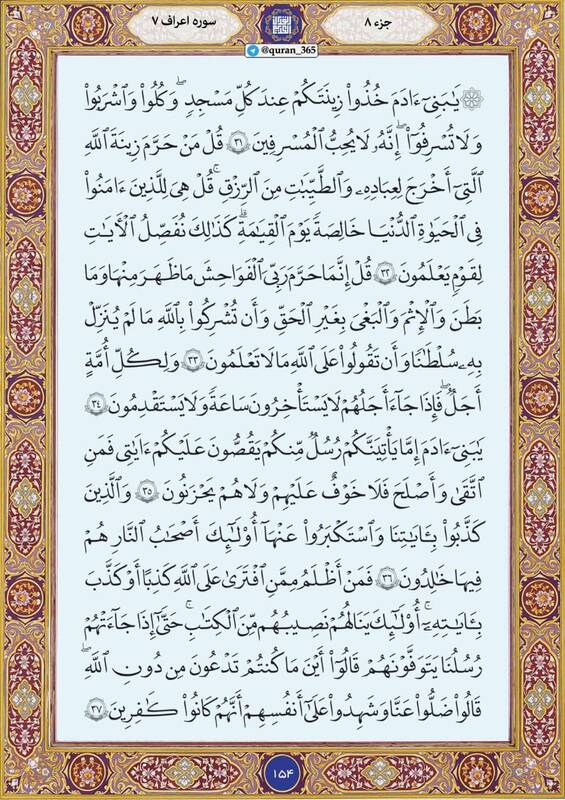 جزء ۸
سوره اعراف ۷
@quran_365
۞ يَٰبَنِيٓ ءَادَمَ خُذُواْ زِينَتَكُمۡ عِندَ كُلِّ مَسۡجِدٖ وَكُلُواْ وَٱشۡرَبُواْ
وَلَا تُسۡرِفُوٓاْۚ إِنَّهُۥ لَا يُحِبُّ ٱلۡمُسۡرِفِينَ ۳۱ قُلۡ مَنۡ حَرَّمَ زِينَةَ ٱللَّهِ
ٱلَّتِيٓ أَخۡرَجَ لِعِبَادِهِۦ وَٱلطَّيِّبَٰتِ مِنَ ٱلرِّزۡقِۚ قُلۡ هِيَ لِلَّذِينَ ءَامَنُواْ
فِي ٱلۡحَيَوٰةِ ٱلدُّنۡيَا خَالِصَةٗ يَوۡمَ ٱلۡقِيَٰمَةِۗ كَذَٰلِكَ نُفَصِّلُ ٱلۡأٓيَٰتِ
لِقَوۡمٖ يَعۡلَمُونَ ۳۲ قُلۡ إِنَّمَا حَرَّمَ رَبِّيَ ٱلۡفَوَٰحِشَ مَا ظَهَرَ مِنۡهَا وَمَا
بَطَنَ وَٱلۡإِثۡمَ وَٱلۡبَغۡيَ بِغَيۡرِ ٱلۡحَقِّ وَأَن تُشۡرِكُواْ بِٱللَّهِ مَا لَمۡ يُنَزِّلۡ
بِهِۦ سُلۡطَٰنٗا وَأَن تَقُولُواْ عَلَى ٱللَّهِ مَا لَا تَعۡلَمُونَ ۳۳ وَلِكُلِّ أُمَّةٍ
أَجَلٞۖ فَإِذَا جَآءَ أَجَلُهُمۡ لَا يَسۡتَأۡخِرُونَ سَاعَةٗ وَلَا يَسۡتَقۡدِمُونَ ۳۴
يَٰبَنِيٓ ءَادَمَ إِمَّا يَأۡتِيَنَّكُمۡ رُسُلٞ مِّنكُمۡ يَقُصُّونَ عَلَيۡكُمۡ ءَايَٰتِي فَمَنِ
ٱتَّقَىٰ وَأَصۡلَحَ فَلَا خَوۡفٌ عَلَيۡهِمۡ وَلَا هُمۡ يَحۡزَنُونَ ۳۵ وَٱلَّذِينَ
كَذَّبُواْ بِـَٔايَٰتِنَا وَٱسۡتَكۡبَرُواْ عَنۡهَآ أُوْلَٰٓئِكَ أَصۡحَٰبُ ٱلنَّارِۖ هُمۡ
فِيهَا خَٰلِدُونَ ۳۶ فَمَنۡ أَظۡلَمُ مِمَّنِ ٱفۡتَرَىٰ عَلَى ٱللَّهِ كَذِبًا أَوۡ كَذَّبَ
بِـَٔايَٰتِهِۦٓۚ أُوْلَٰٓئِكَ يَنَالُهُمۡ نَصِيبُهُم مِّنَ ٱلۡكِتَٰبِۖ حَتَّىٰٓ إِذَا جَآءَتۡهُمۡ
رُسُلُنَا يَتَوَفَّوۡنَهُمۡ قَالُوٓاْ أَيۡنَ مَا كُنتُمۡ تَدۡعُونَ مِن دُونِ ٱللَّهِۖ
قَالُواْ ضَلُّواْ عَنَّا وَشَهِدُواْ عَلَىٰٓ أَنفُسِهِمۡ أَنَّهُمۡ كَانُواْ كَٰفِرِينَ ۳۷
۱۵۴